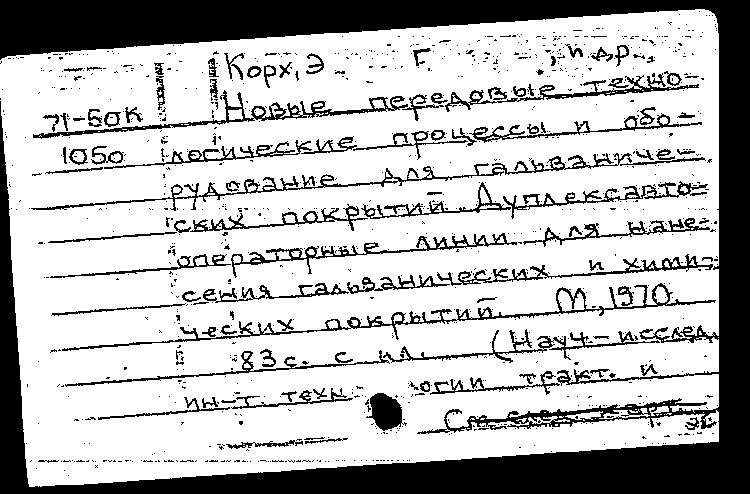 Корх, Э. Г., и др.
71-50к
Новые передовые техно-
1050
логические процессы и обо-
рудование для гальваниче-
ских покрытий. Дуплексавто-
операторные линии для нане-
сения гальванических и хими-
ческих покрытий. М., 1970.
83 с. с ил. (Науч.-исслед.
ин-т техн огии тракт. и
См. след. карт.